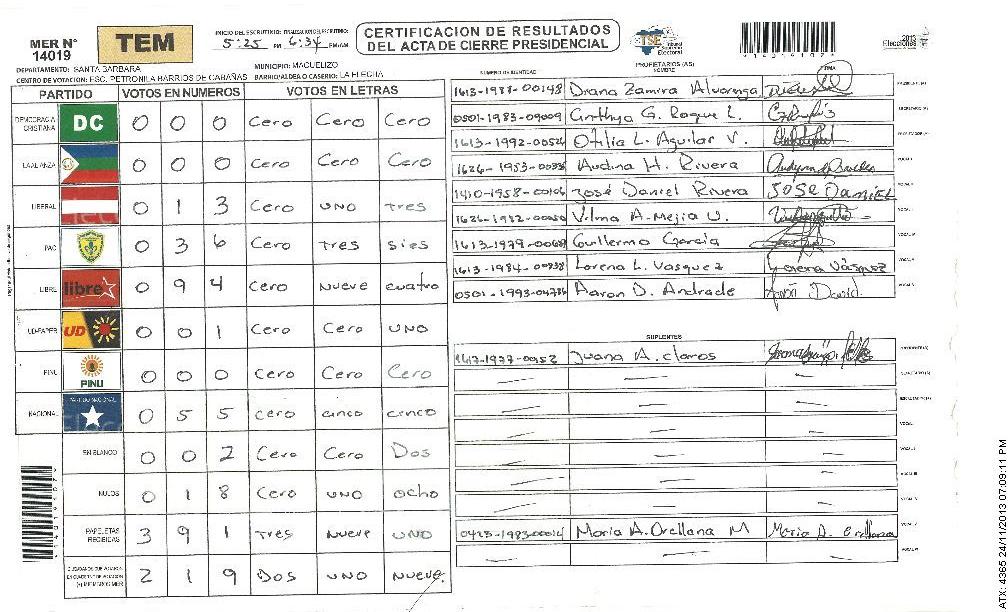 MER N° 14019
TEM
INICIO DEL ESCRUTINIO: FINALIZACION DEL ESCRUTINIO:
5:25 PM 6:34 PM/AM
CERTIFICACION DE RESULTADOS
DEL ACTA DE CIERRE PRESIDENCIAL
TSE Tribunal Supremo Electoral
2013 Elecciones
DEPARTAMENTO: SANTA BARBARA MUNICIPIO: MACUELIZO
CENTRO DE VOTACION: ESC. PETRONILA BARRIOS DE CABAÑAS BARRIO/ALDEA O CASERIO: LA FLECHA
PARTIDO VOTOS EN NUMEROS VOTOS EN LETRAS
DEMOCRACIA CRISTIANA DC 0 0 0 Cero Cero Cero
LA ALIANZA 0 0 0 Cero Cero Cero
LIBERAL 0 1 3 Cero UNO Tres
PAC 0 3 6 Cero Tres sies
LIBRE libre 0 9 4 Cero Nueve cuatro
UD-FAPER UD 0 0 1 Cero Cero UNO
PINU PINU 0 0 0 Cero Cero Cero
NACIONAL PARTIDO NACIONAL 0 5 5 cero cinco cinco
EN BLANCO 0 0 2 Cero Cero Dos
NULOS 0 1 8 Cero UNO ocho
PAPELETAS RECIBIDAS 3 9 1 Tres Nueve UNO
CIUDADANOS QUE VOTARON EN CUADERNO DE VOTACION (+) MIEMBROS MER 2 1 9 Dos UNO Nueve.
PROPIETARIOS (AS)
NUMERO DE IDENTIDAD NOMBRE FIRMA
1613-1988-00148 Diana Zamira Alvarenga PRESIDENTE (A)
0501-1983-09009 Cinthya G. Roque L. SECRETARIO (A)
1613-1992-00524 Otilia L. Aguilar V. ESCRUTADOR (A)
1626-1953-00038 Audina H. Rivera VOCAL I
1410-1958-00106 José Daniel Rivera JOSE DANIEL
1626-1982-00050 Vilma A-Mejia U.
1613-1979-00069 Guillermo García VOCAL IV
1613-1984-00938 Lorena L. Vasquez Lorena Vásquez VOCAL V
0501-1993-04786 Aaron D. Andrade Aarón David
SUPLENTES
1617-1977-00952 Juana A. claros
SECRETARIO (A)
ESCRUTADOR (A)
VOCAL I
VOCAL II
VOCAL III
0423-1983-00014 Maria A. Orellana M Maria A. Orellana
VOCAL VI
ATX: 4365 24/11/2013 07:09:11 PM